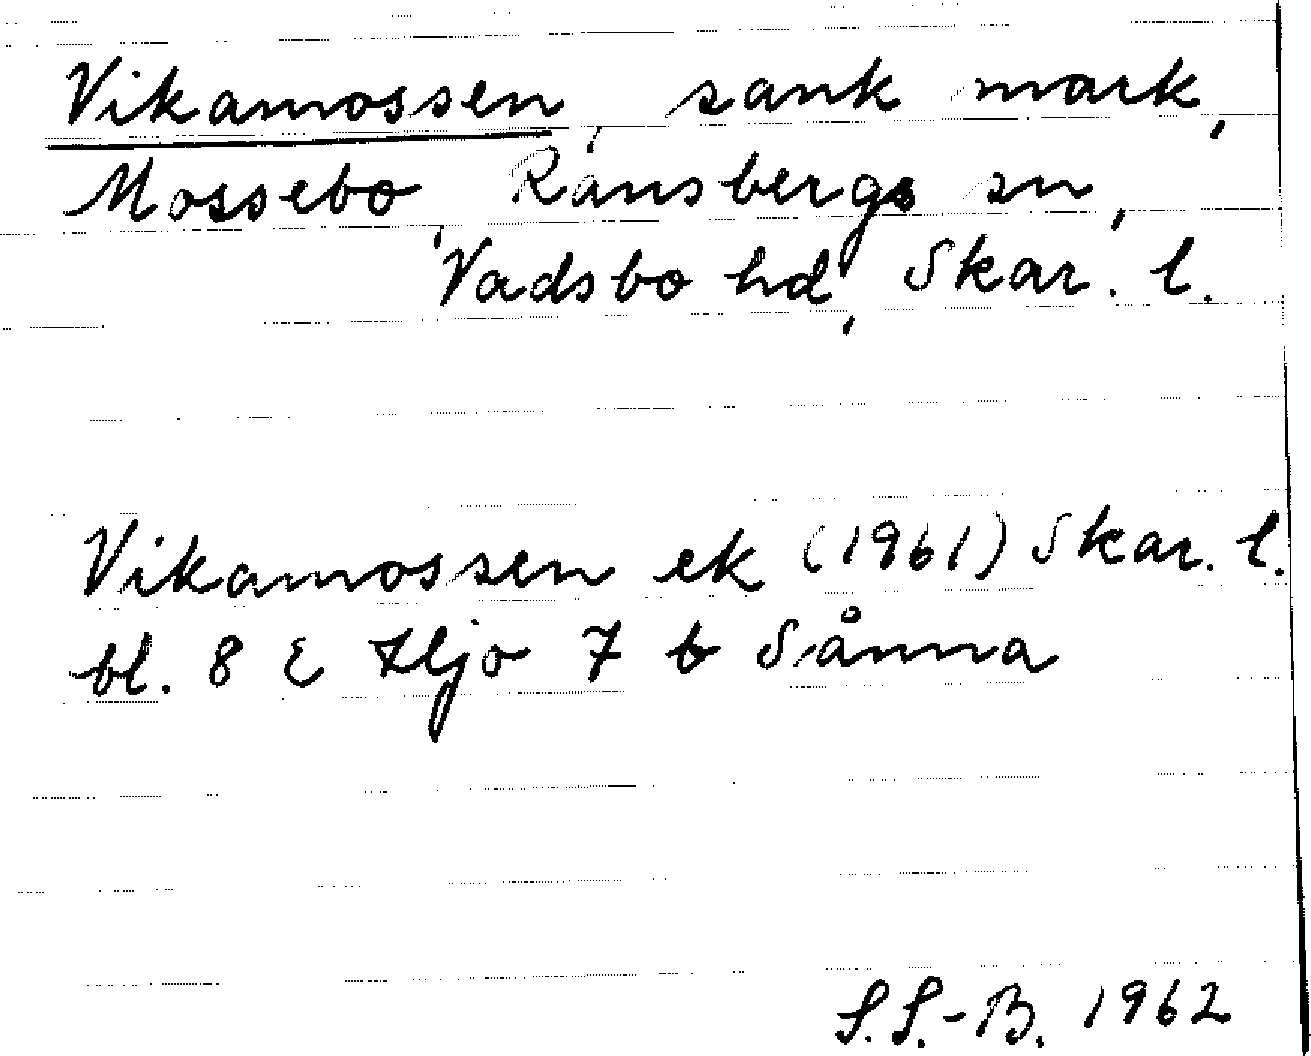 Vikamossen, sank mark,
Mossebo, Ransbergs sn,
Vadsbo hd, Skar. l.
Vikamossen ek (1961) Skar. l.
bl. 8 E Hjo 7 b Sånna
S.S.-B. 1962